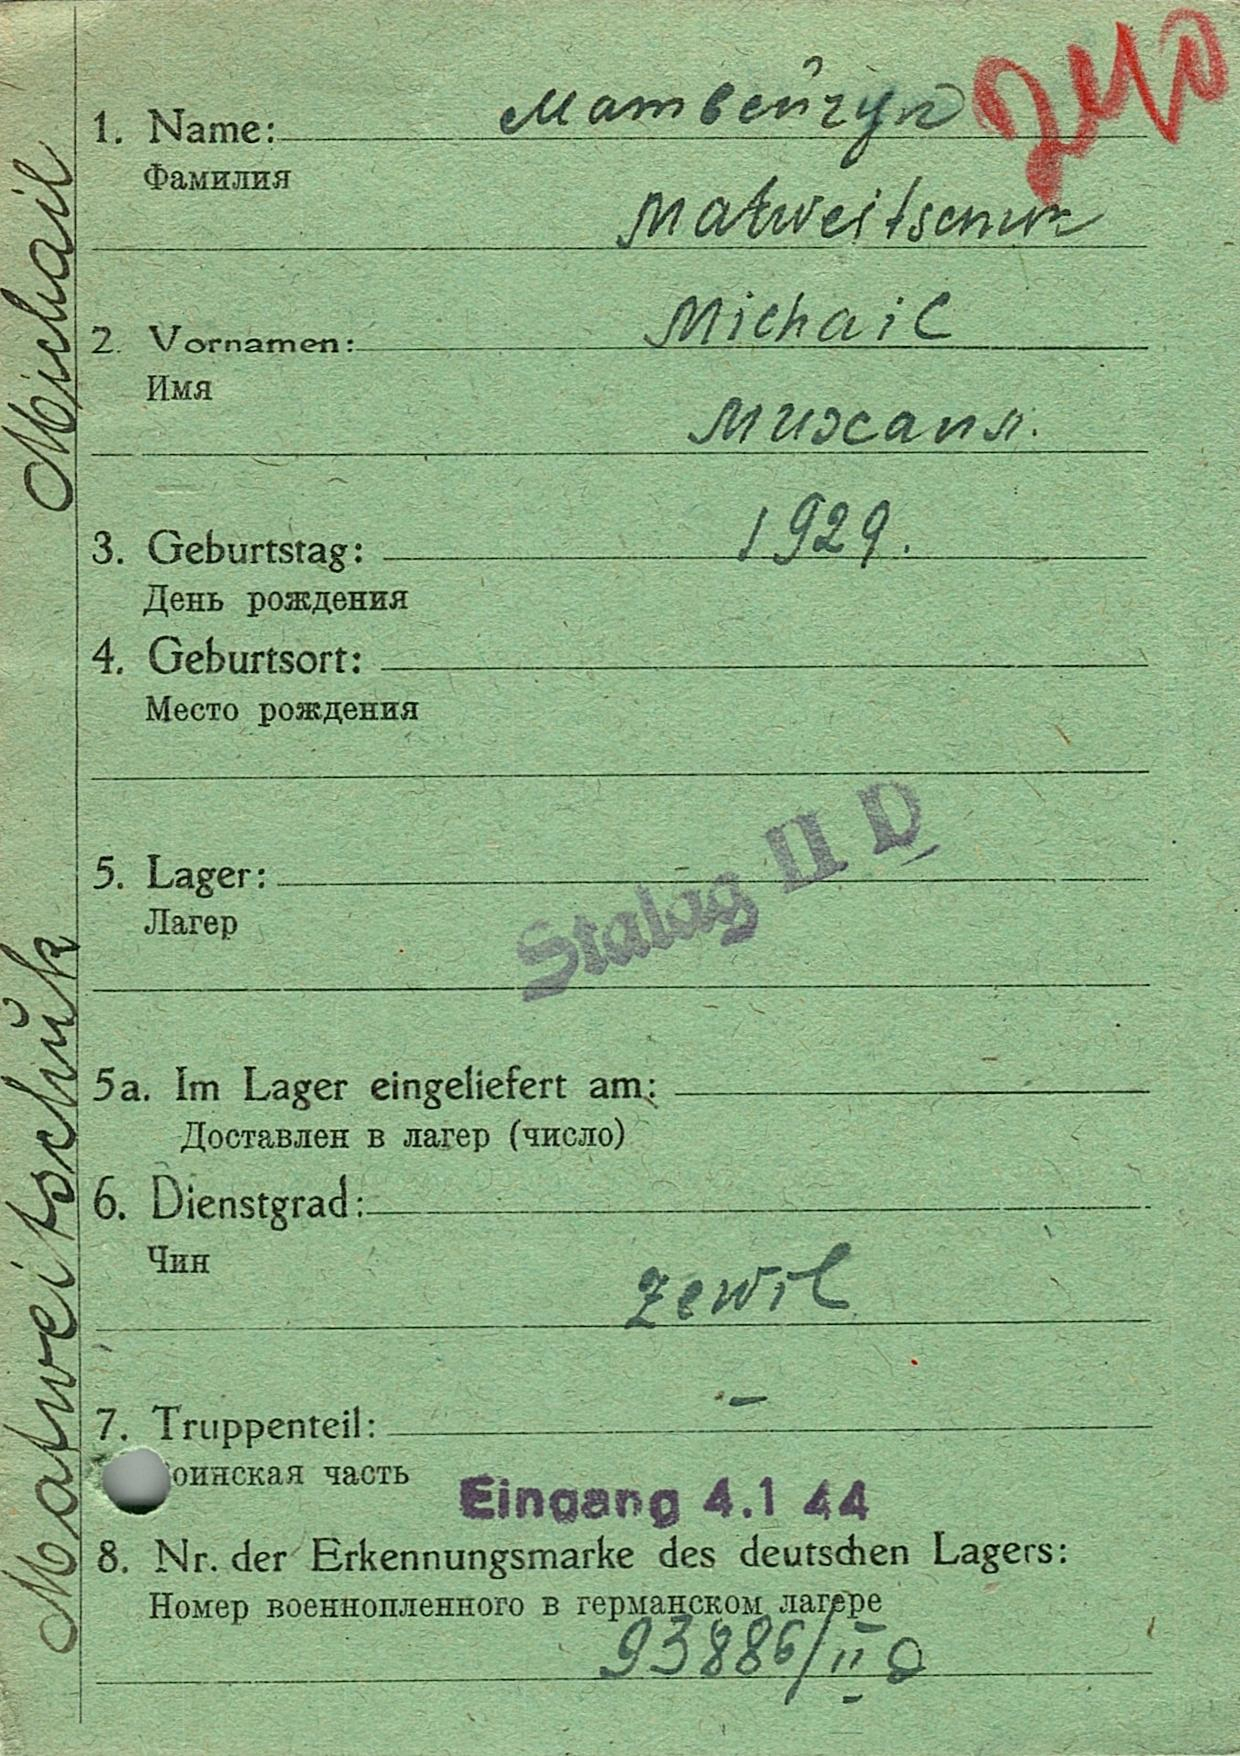 240
1. Name: Матвейчук
Фамилия
Matweitschuk
2. Vornamen: Michail
Имя
Михаил.
3. Geburtstag: 1929.
День рождения
4. Geburtsort:
Место рождения
5. Lager: Stalag II D
Лагер
5a. Im Lager eingeliefert am:
Доставлен в лагер (число)
6. Dienstgrad:
Чин
zewil
7. Truppenteil: –
оинская часть
Eingang 4.1 44
8. Nr. der Erkennungsmarke des deutschen Lagers:
Номер военнопленного в германском лагере
93886/II D
Matweitschuk Michail